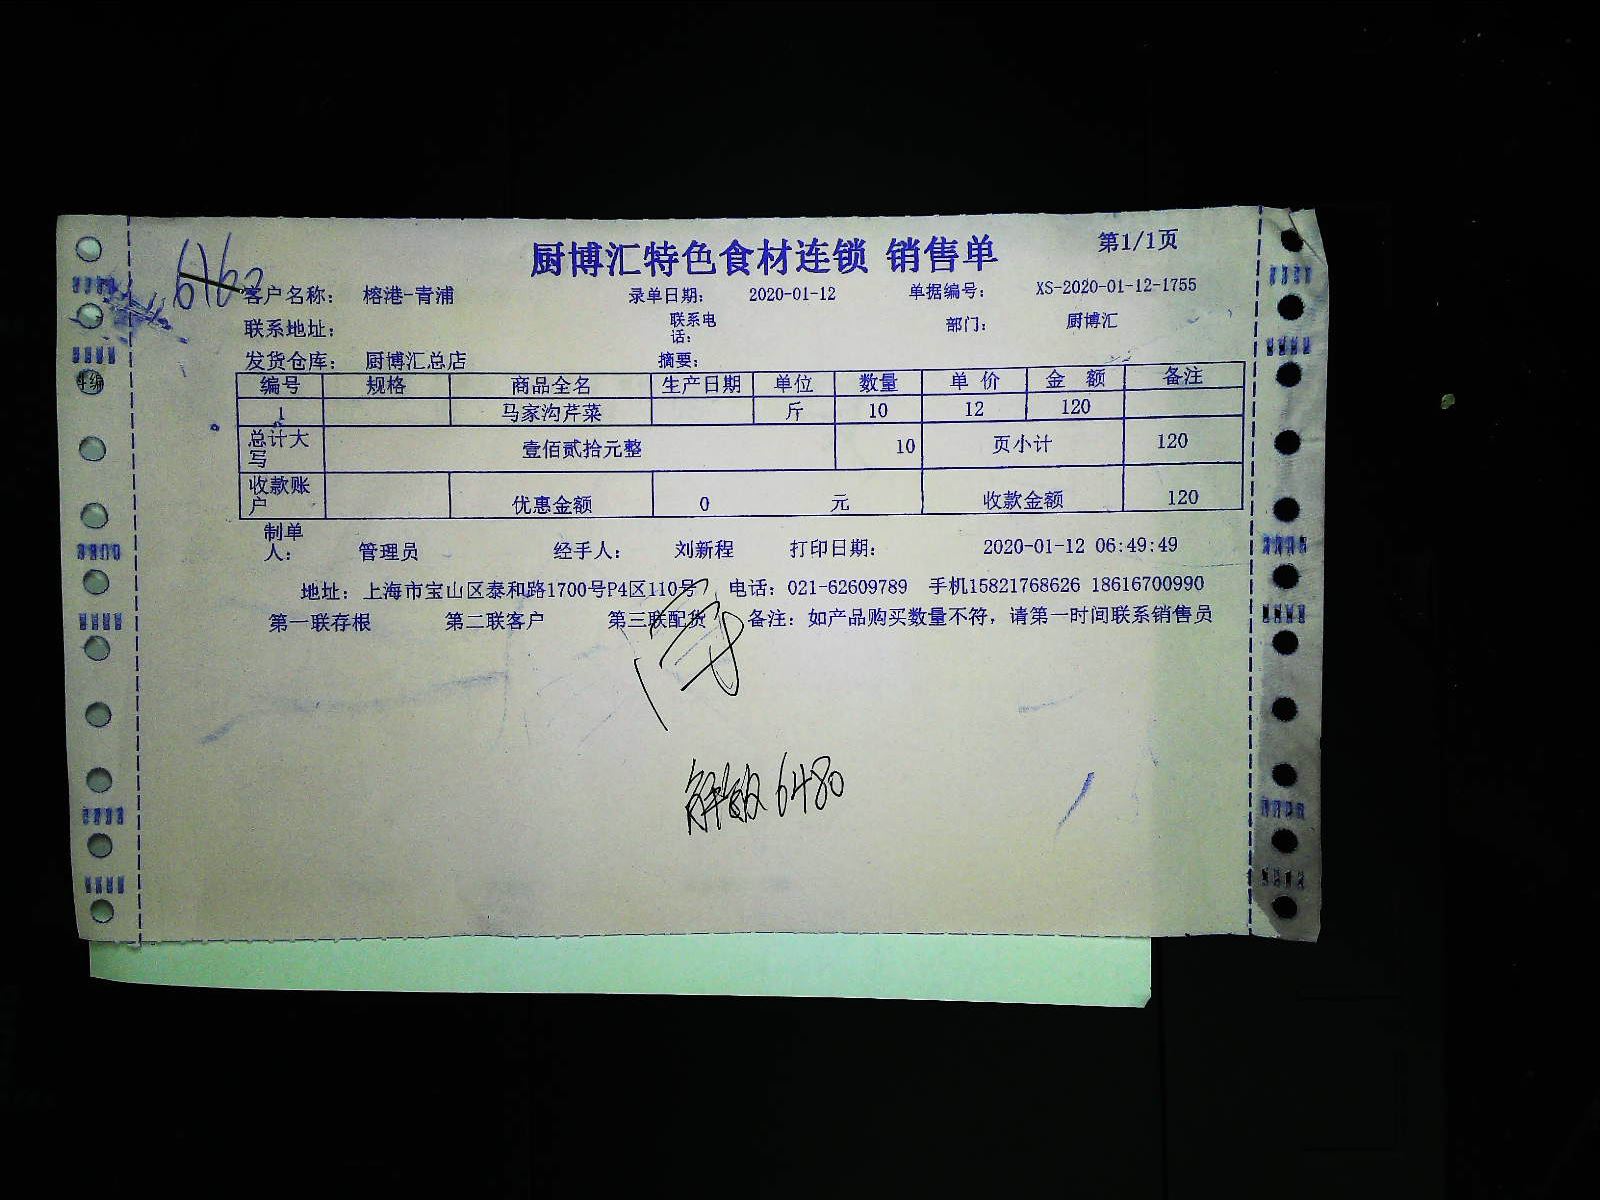 厨博汇特色食材连锁 销售单 第1/1页
客户名称： 榕港-青浦 录单日期： 2020-01-12 单据编号： XS-2020-01-12-1755
联系地址： 联系电话： 部门： 厨博汇
发货仓库： 厨博汇总店 摘要：
编号 规格 商品全名 生产日期 单位 数量 单价 金额 备注
1 马家沟芹菜 斤 10 12 120
总计大写 壹佰贰拾元整 10 页小计 120
收款账户 优惠金额 0 元 收款金额 120
制单人： 管理员 经手人： 刘新程 打印日期： 2020-01-12 06:49:49
地址：上海市宝山区泰和路1700号P4区110号 电话：021-62609789 手机15821768626 18616700990
第一联存根 第二联客户 第三联配货 备注：如产品购买数量不符，请第一时间联系销售员
6480